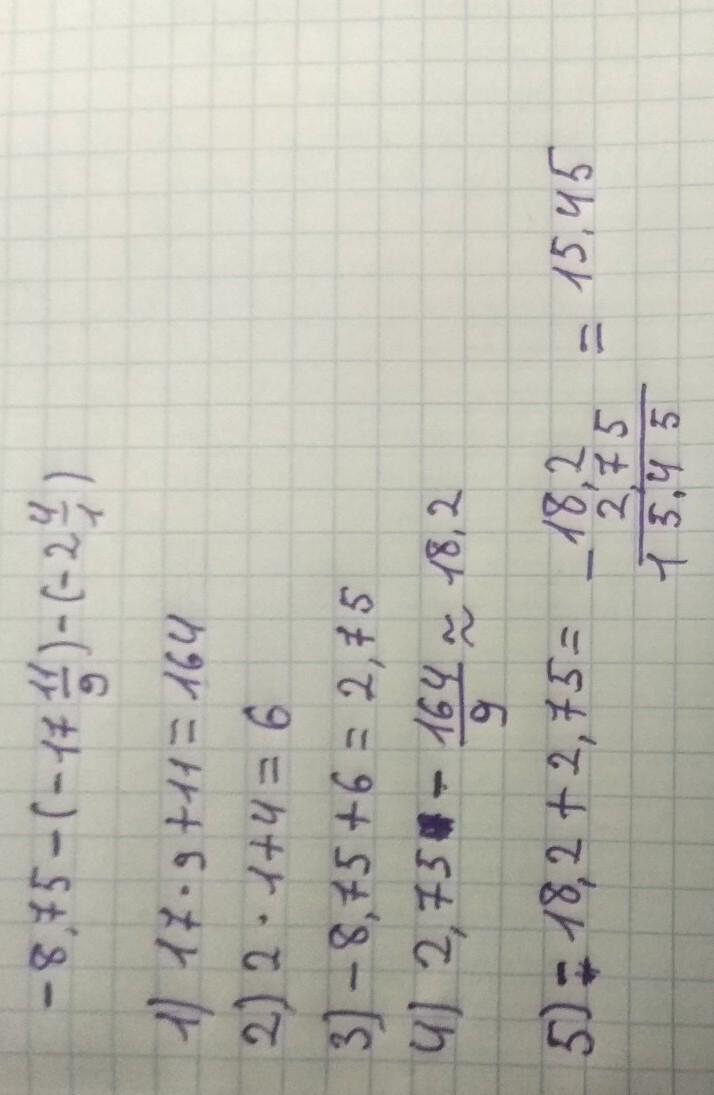 -8,75-(-17 11/9)-(-2 4/1)
1) 17·9+11=164
2) 2·1+4=6
3) -8,75+6=2,75
4) 2,75 - 164/9 ≈ 18,2
5) 18,2+2,75= -18,2
2,75
15.45 = 15.45